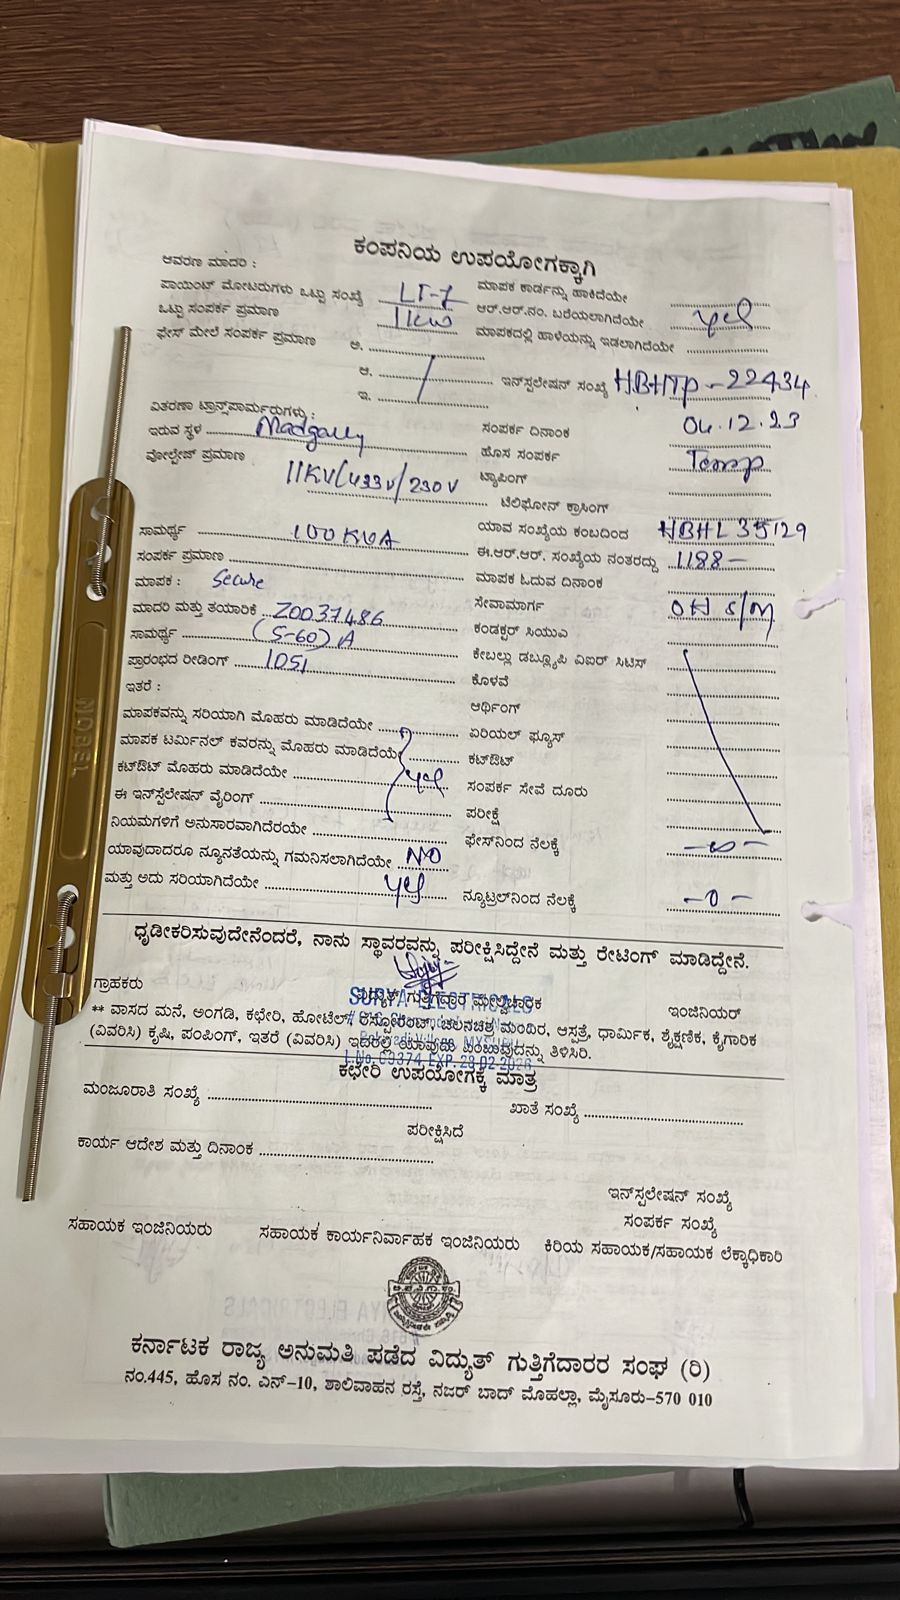 ಕಂಪನಿಯ ಉಪಯೋಗಕ್ಕಾಗಿ
ಆವರಣ ಮಾದರಿ :
ಪಾಯಿಂಟ್ ಮೋಟರುಗಳು ಒಟ್ಟು ಸಂಖ್ಯೆ LT-7 ಮಾಪಕ ಕಾರ್ಡನ್ನು ಹಾಕಿದೆಯೇ
ಒಟ್ಟು ಸಂಪರ್ಕ ಪ್ರಮಾಣ 11KW ಆರ್.ಆರ್.ನಂ. ಬರೆಯಲಾಗಿದೆಯೇ yes
ಫೇಸ್ ಮೇಲೆ ಸಂಪರ್ಕ ಪ್ರಮಾಣ ಅ. ಮಾಪಕದಲ್ಲಿ ಹಾಳೆಯನ್ನು ಇಡಲಾಗಿದೆಯೇ
ಆ. ಇನ್‌ಸ್ಪಲೇಷನ್ ಸಂಖ್ಯೆ HBHTP-22434
ಇ.
ವಿತರಣಾ ಟ್ರಾನ್ಸ್‌ಪಾರ್ಮರುಗಳು : ಸಂಪರ್ಕ ದಿನಾಂಕ 04.12.23
ಇರುವ ಸ್ಥಳ Madgally ಹೊಸ ಸಂಪರ್ಕ Temp
ವೋಲ್ಟೇಜ್ ಪ್ರಮಾಣ 11KV/433V/230V ಟ್ಯಾಪಿಂಗ್
ಟೆಲಿಫೋನ್ ಕ್ರಾಸಿಂಗ್
ಸಾಮರ್ಥ್ಯ 100KVA ಯಾವ ಸಂಖ್ಯೆಯ ಕಂಬದಿಂದ HBHL35129
ಸಂಪರ್ಕ ಪ್ರಮಾಣ ಈ.ಆರ್.ಆರ್. ಸಂಖ್ಯೆಯ ನಂತರದ್ದು 1188-
ಮಾಪಕ : Secure ಮಾಪಕ ಓದುವ ದಿನಾಂಕ
ಮಾದರಿ ಮತ್ತು ತಯಾರಿಕೆ Z0037486 ಸೇವಾಮಾರ್ಗ OH S/M
ಸಾಮರ್ಥ್ಯ (5-60)A ಕಂಡಕ್ಟರ್ ಸಿಯುಎ
ಪ್ರಾರಂಭದ ರೀಡಿಂಗ್ 1051 ಕೇಬಲ್ಲು ಡಬ್ಲ್ಯೂಪಿ ವಿಐರ್ ಸಿಟಿಸ್
ಇತರೆ : ಕೊಳವೆ
ಆರ್ಥಿಂಗ್
ಮಾಪಕವನ್ನು ಸರಿಯಾಗಿ ಮೊಹರು ಮಾಡಿದೆಯೇ ಏರಿಯಲ್ ಫ್ಯೂಸ್
ಮಾಪಕ ಟರ್ಮಿನಲ್ ಕವರನ್ನು ಮೊಹರು ಮಾಡಿದೆಯೇ ಕಟ್‌ಔಟ್
ಕಟ್‌ಔಟ್ ಮೊಹರು ಮಾಡಿದೆಯೇ yes ಸಂಪರ್ಕ ಸೇವೆ ದೂರು
ಈ ಇನ್‌ಸ್ಪೆಲೇಷನ್ ವೈರಿಂಗ್ ಪರೀಕ್ಷೆ
ನಿಯಮಗಳಿಗೆ ಅನುಸಾರವಾಗಿದೆರಯೇ ಫೇಸ್‌ನಿಂದ ನೆಲಕ್ಕೆ -∞-
ಯಾವುದಾದರೂ ನ್ಯೂನತೆಯನ್ನು ಗಮನಿಸಲಾಗಿದೆಯೇ NO
ಮತ್ತು ಅದು ಸರಿಯಾಗಿದೆಯೇ yes ನ್ಯೂಟ್ರಲ್‌ನಿಂದ ನೆಲಕ್ಕೆ -0-
ಧೃಡೀಕರಿಸುವುದೇನೆಂದರೆ, ನಾನು ಸ್ಥಾವರವನ್ನು ಪರೀಕ್ಷಿಸಿದ್ದೇನೆ ಮತ್ತು ರೇಟಿಂಗ್ ಮಾಡಿದ್ದೇನೆ.
ಗ್ರಾಹಕರು ವಿದ್ಯುತ್ ಗುತ್ತಿಗೆದಾರ ಮೇಲ್ವಿಚಾರಕ ಇಂಜಿನಿಯರ್
SURYA ELECTRICALS
** ವಾಸದ ಮನೆ, ಅಂಗಡಿ, ಕಛೇರಿ, ಹೋಟೆಲ್/ ರೆಸ್ಟೋರೆಂಟ್, ಚಲನಚಿತ್ರ ಮಂದಿರ, ಆಸ್ಪತ್ರೆ, ಧಾರ್ಮಿಕ, ಶೈಕ್ಷಣಿಕ, ಕೈಗಾರಿಕ
(ವಿವರಿಸಿ) ಕೃಷಿ, ಪಂಪಿಂಗ್, ಇತರೆ (ವಿವರಿಸಿ) ಇದರಲ್ಲಿ ಯಾವುದು ಎಂಬುವುದನ್ನು ತಿಳಿಸಿರಿ.
EXP. 28.02.2026
ಕಛೇರಿ ಉಪಯೋಗಕ್ಕೆ ಮಾತ್ರ
ಮಂಜೂರಾತಿ ಸಂಖ್ಯೆ ಖಾತೆ ಸಂಖ್ಯೆ
ಪರೀಕ್ಷಿಸಿದೆ
ಕಾರ್ಯ ಆದೇಶ ಮತ್ತು ದಿನಾಂಕ
ಇನ್‌ಸ್ಪಲೇಷನ್ ಸಂಖ್ಯೆ
ಸಂಪರ್ಕ ಸಂಖ್ಯೆ
ಸಹಾಯಕ ಇಂಜಿನಿಯರು ಸಹಾಯಕ ಕಾರ್ಯನಿರ್ವಾಹಕ ಇಂಜಿನಿಯರು ಕಿರಿಯ ಸಹಾಯಕ/ಸಹಾಯಕ ಲೆಕ್ಕಾಧಿಕಾರಿ
ಕರ್ನಾಟಕ ರಾಜ್ಯ ಅನುಮತಿ ಪಡೆದ ವಿದ್ಯುತ್ ಗುತ್ತಿಗೆದಾರರ ಸಂಘ (ರಿ)
ನಂ.445, ಹೊಸ ನಂ. ಎನ್-10, ಶಾಲಿವಾಹನ ರಸ್ತೆ, ನಜರ್ ಬಾದ್ ಮೊಹಲ್ಲಾ, ಮೈಸೂರು-570 010
NOBEL